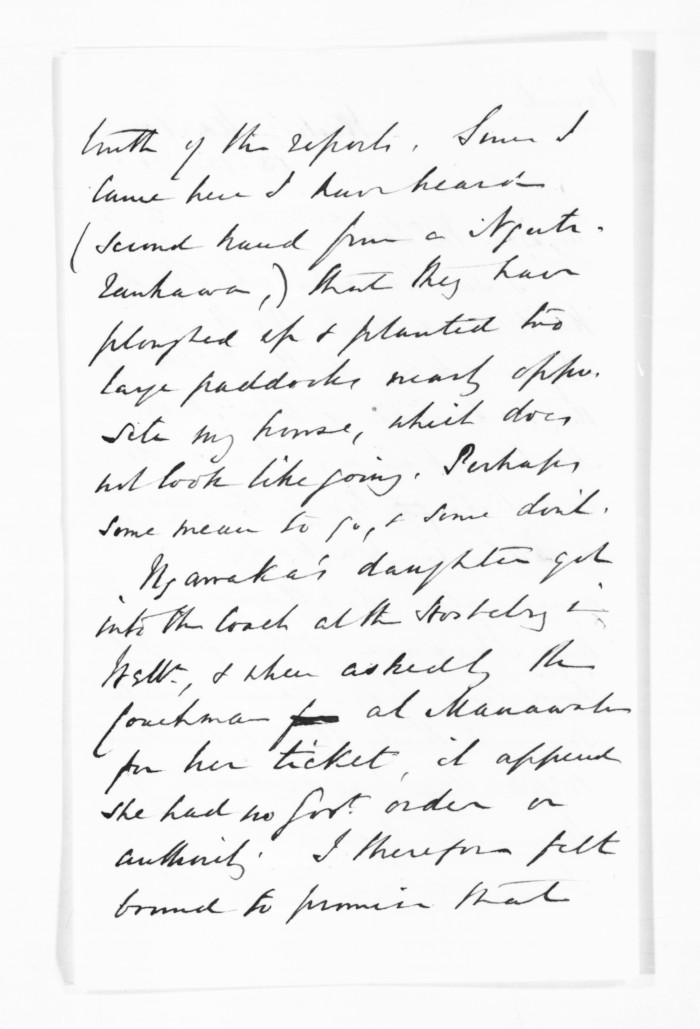 truth of the reports. Since I
came here I have heard
(second hand from a Ngati-
raukawa,) that they have
ploughed up & planted two
large paddocks nearly oppo-
site my house, which does
not look like going. Perhaps
some mean to go, & some don't.
Ngawaka's daughter got
into the Coach at the Hostelry in
Welln., & when asked by the
Coachman at Manawatu
for her ticket, it appeared
she had no Govt. order or
authority. I therefore felt
bound to promise that